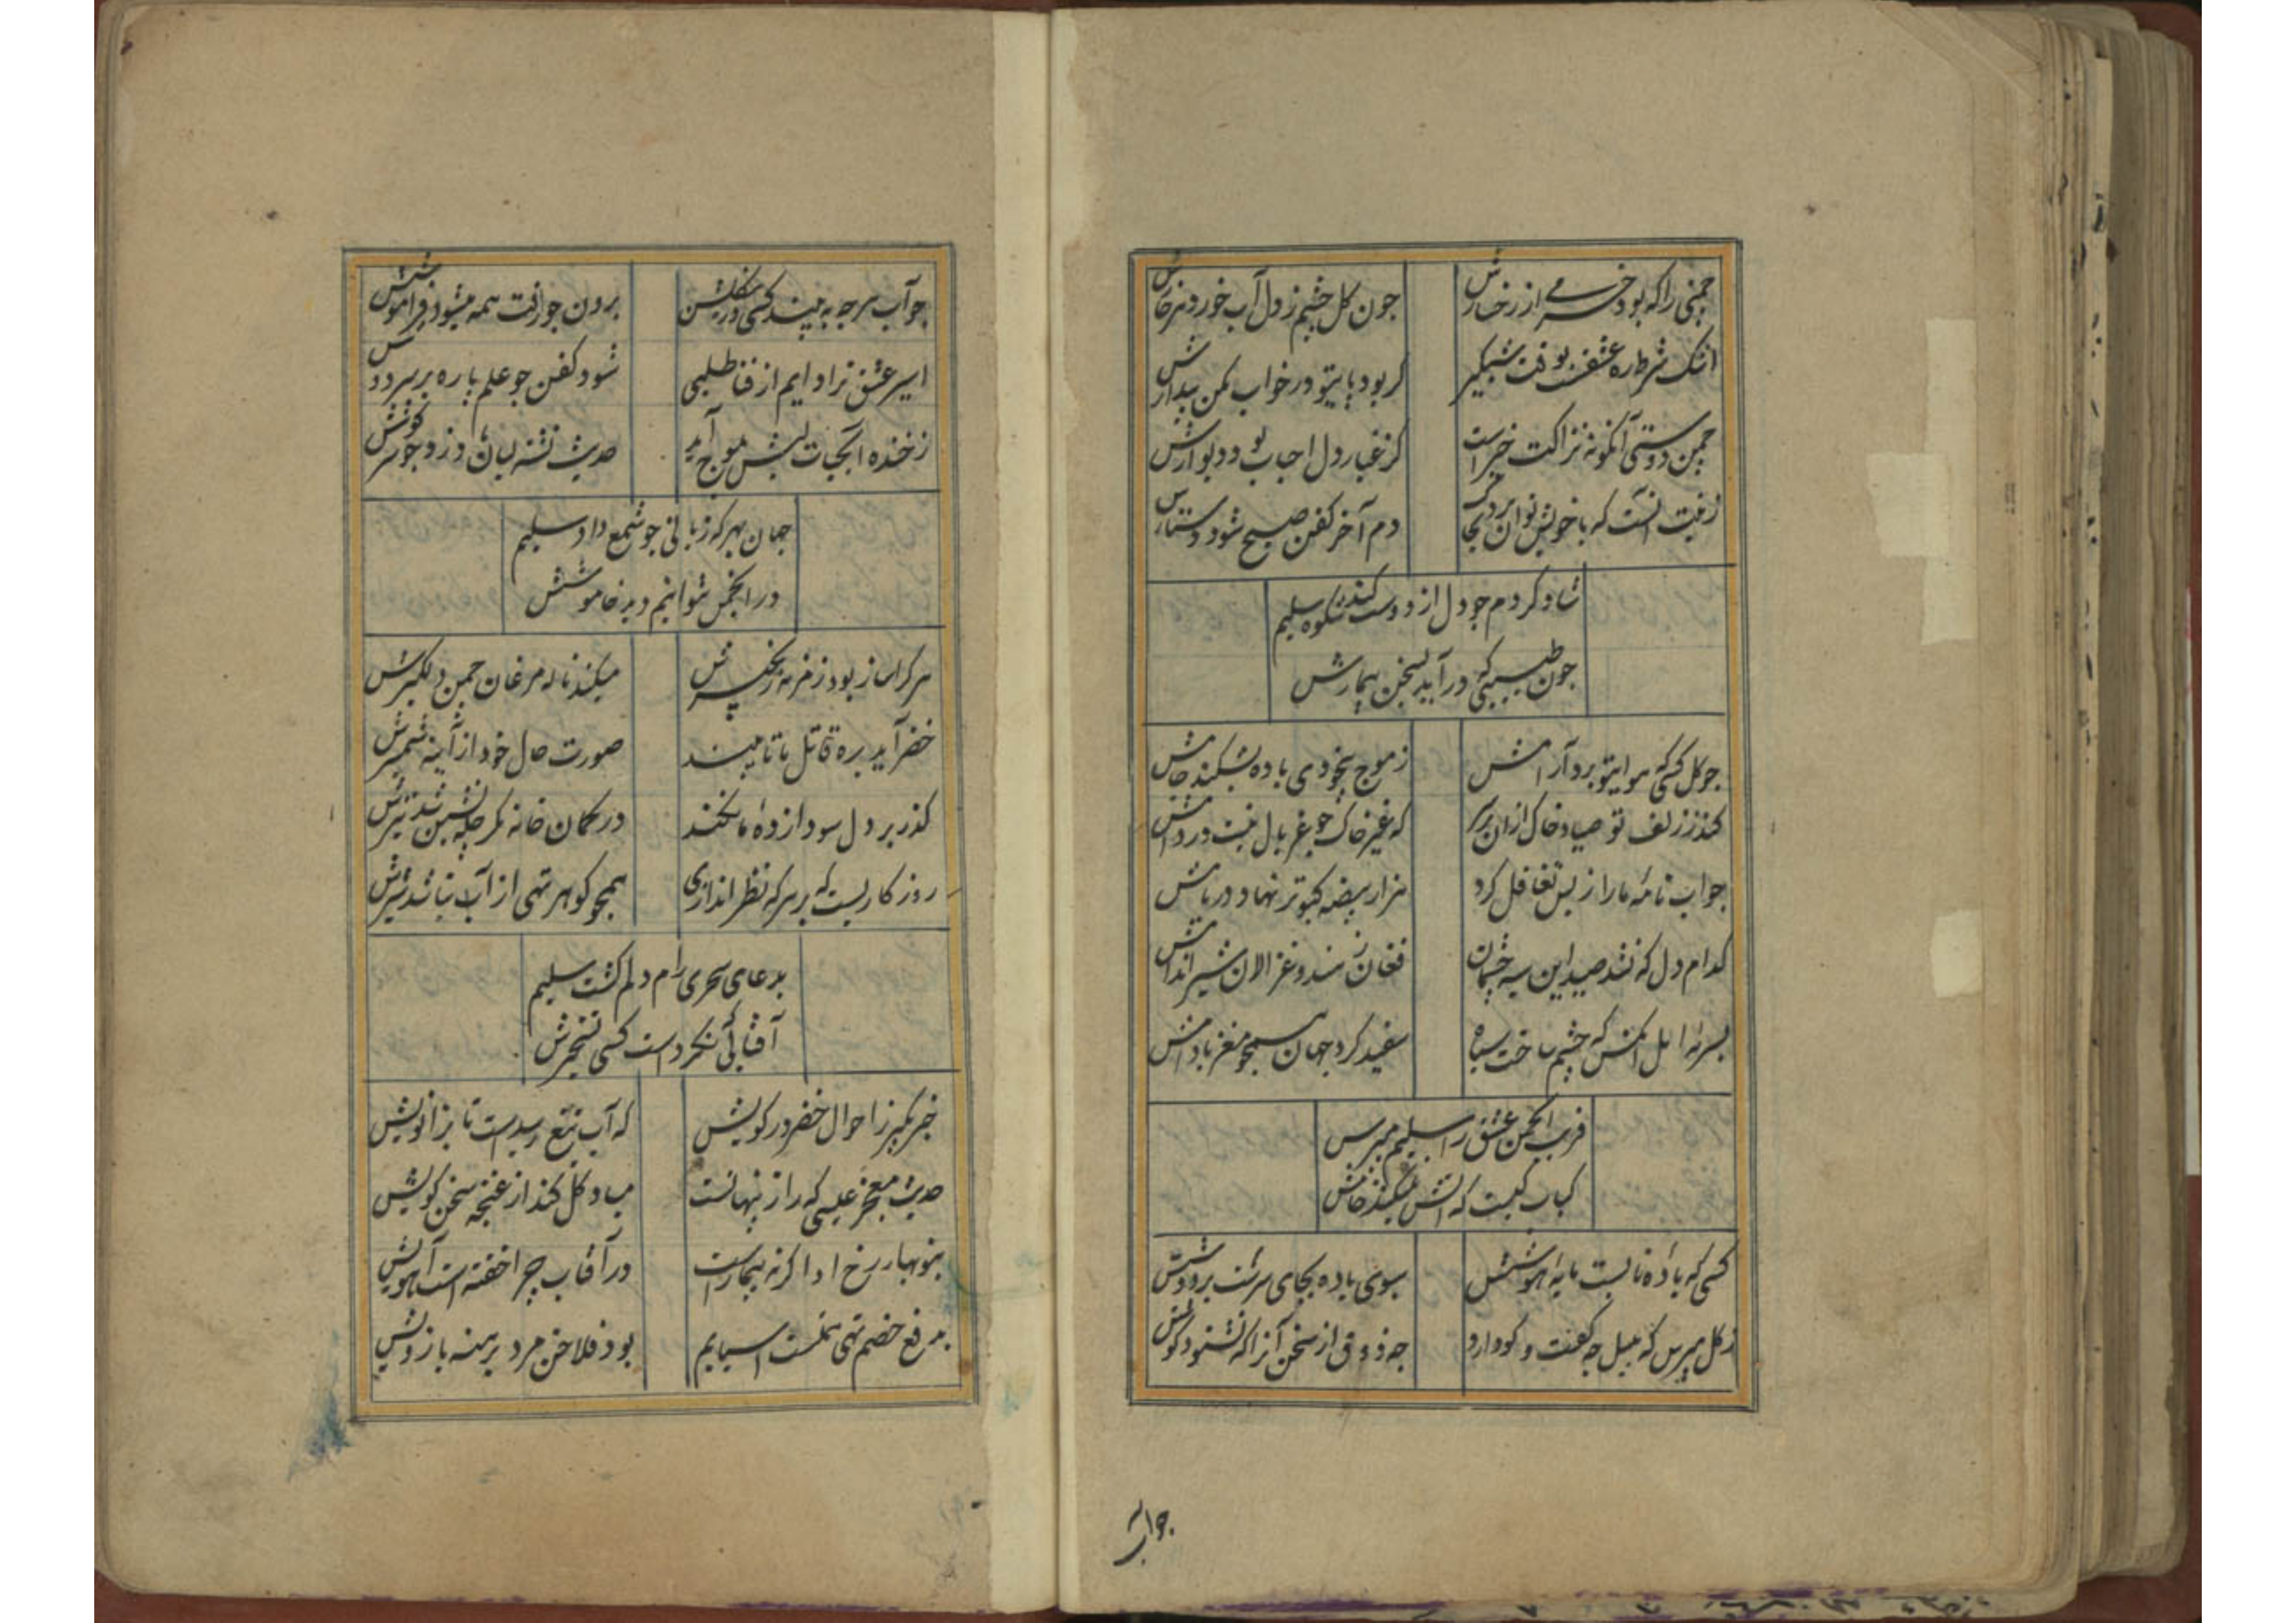 چمنی را که بود خرمی از رخسارش
چون کل چشم ز دل آب خورد هر خارش
اشک شرطاره عشقست بوقت شبکیر
کر بود پایتو در خواب بکن بیدارش
چمن دوستی آنکونه نزاکت خیز است
کز غبار دل احباب بود دیوارش
زینت آنست که با خویش توان برد بخاک
دم آخر کفن صبح شود دستارش
شاد کردم چو دل از دوست کند شکوه سلیم
چون طبیبی که در آید بسخن بیمارش
چو کل کسی که هوایتو برد آرامش
ز موج بیخودی باده بشکند جامش
کند ز زلف تو صیاد خاک از آن بر سر
که غیر خاک چو غربال نیست در دامش
جواب نامه ما را ز بس تغافل کرد
هزار بیضه کبوتر نهاد در بامش
کدام دل که نشد صید این سیه چشمان
فغان ز هند و غزالان شیر اندامش
بسرمه ایل انکس که چشم ساخت سیاه
سفید کرد جهان همچو مغز بادامش
فریب انجمن عشق را سلیم مپرس
کباب کیست که آتش نمیکند خامش
کسی که باده نابست مایه هوشش
سبوی باده بجای سرست بر دوشش
ز کل مپرس که بلبل چه کفت و کو دارد
چه ذوقی از سخن آنرا که نشنود کوشش
جواب
چو آب هر چه به بیند کسی درین کلشن
برون چو رفت همه میشود فراموشش
اسیر عشق ترا دایم از فنا طلبی
شود کفن چو علم پاره بر سر دوشش
ز خنده آبحیات لبش بموج آمد
حدیث تشنه لبان دزد چو در کوشش
جهان بهر که زبانی چو شمع داد سلیم
در انجمن نتوانیم دید خاموشش
هر کرا ساز بود زمزمه زنجیرش
میکند ناله مرغان چمن دلکیرش
خضر آید بره قاتل ما تا بیند
صورت حال خود از آینه شمشیرش
کذر بر دل سودازده ما نکند
در کمان خانه مکر چله نشین شد تیرش
روزکاریست که بر هر که نظر اندازی
همچو کوهر تهی از آب نباشد شیرش
بدعای سحری رام دلم کشت سلیم
آفتابی که نکرد است کسی تسخیرش
خبر بکیر ز احوال خضر در کویش
که آب تیغ رسیدست تا بزانویش
حدیث معجز عیسی که راز پنهانست
مباد کل کند از غنچه سخن کویش
بنوبهار رخ او اکر نه بیمار است
در آفتاب چرا خفته است آهویش
بدفع خصم تهی نیست آسیایم
بود فلاخن مرد برهنه بازویش